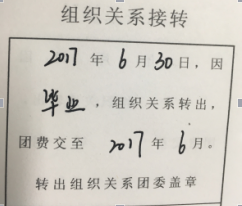 组织关系接转
2017 年 6 月 30 日，因
毕业，组织关系转出，
团费交至 2017 年 6 月。
转出组织关系团委盖章